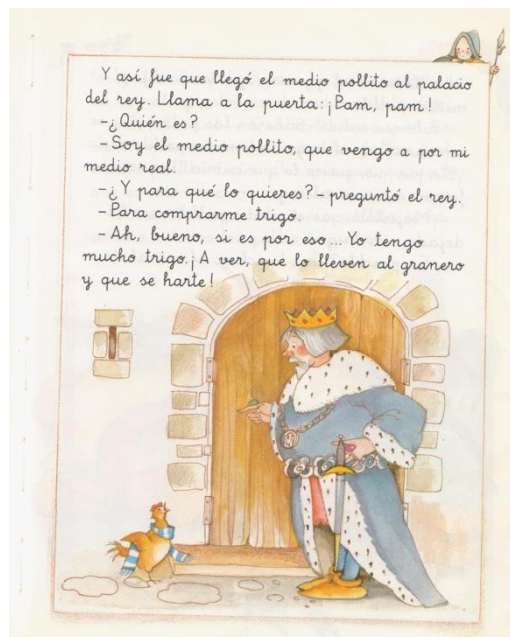 Y así fue que llegó el medio pollito al palacio
del rey. Llama a la puerta: ¡Pam, pam!
-¿Quién es?
-Soy el medio pollito, que vengo a por mi
medio real.
-¿Y para qué lo quieres? - preguntó el rey.
-Para comprarme trigo.
- Ah, bueno, si es por eso... Yo tengo
mucho trigo. ¡A ver, que lo lleven al granero
y que se harte!